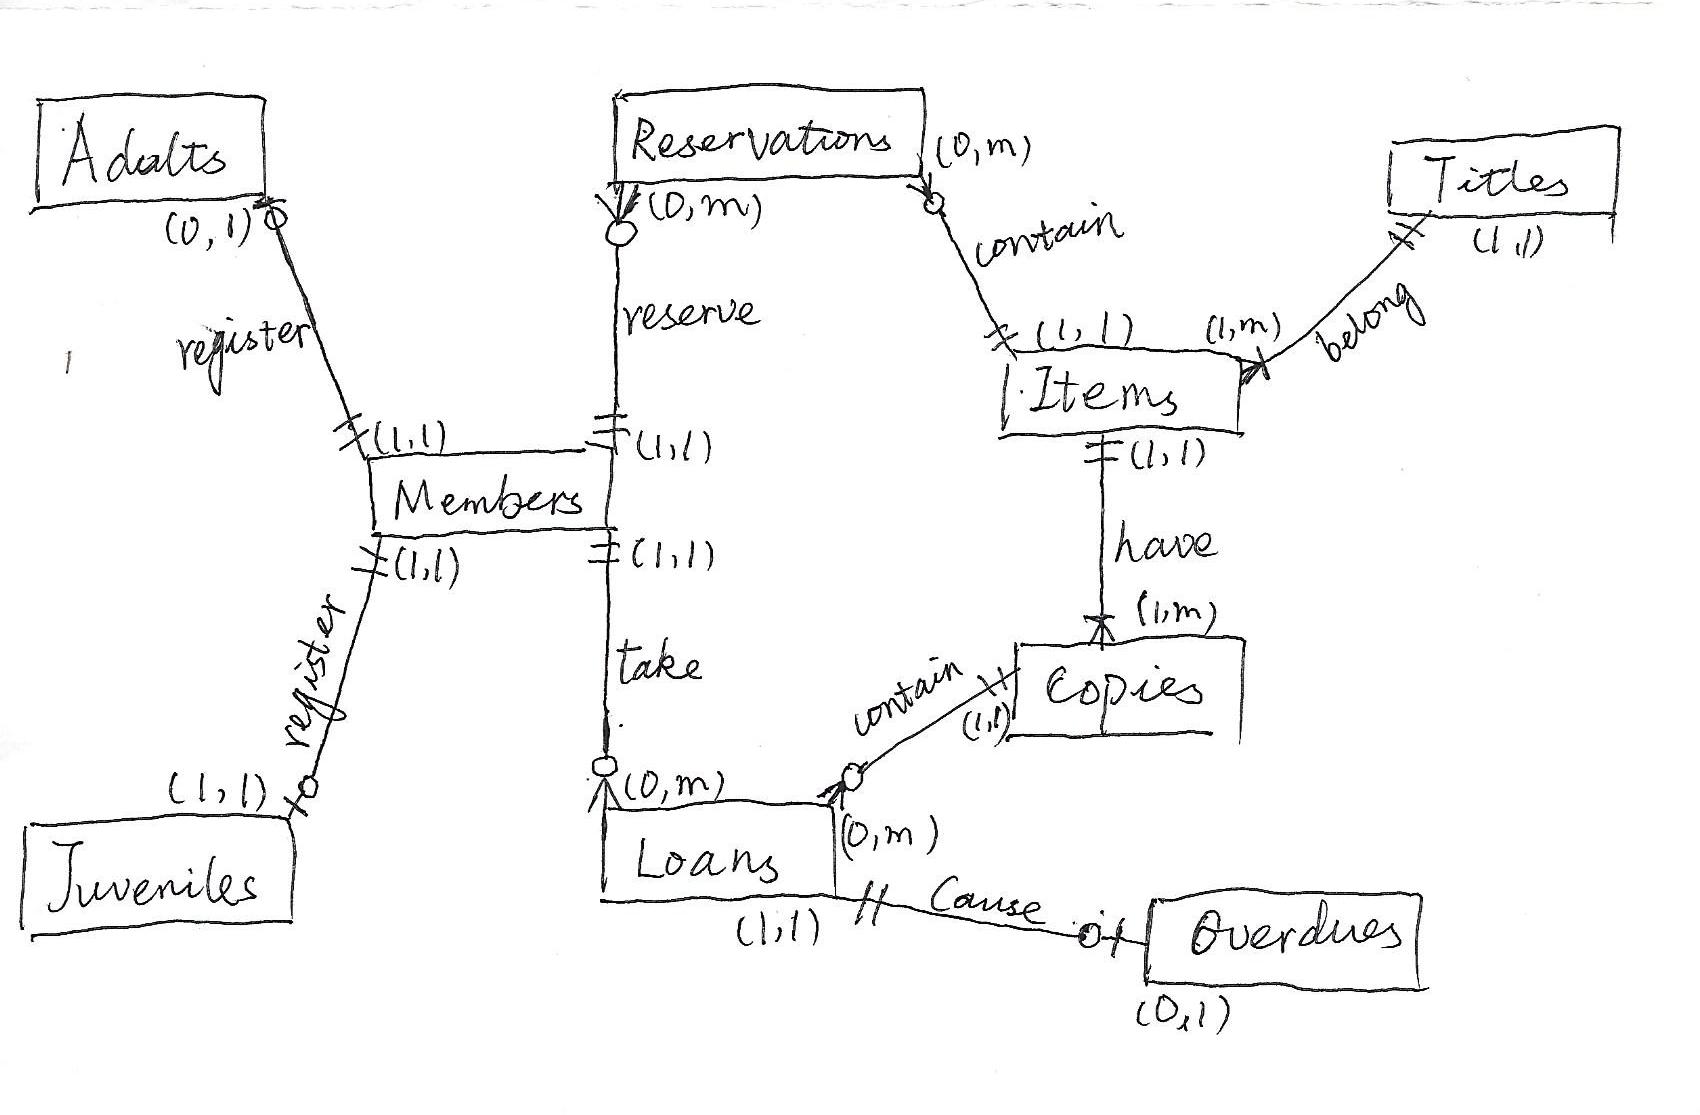 Adults
(0,1)
register
(1,1)
Members
(1,1)
register
(1,1)
Juveniles
Reservations
(0,m)
(0,m)
reserve
contain
(1,1)
(1,1)
take
(0,m)
Loans
(1,1)
Titles
(1,1)
belong
(1,m)
(1,1)
Items
(1,1)
have
(1,m)
Copies
(1,1)
contain
(0,m)
Cause
Overdues
(0,1)